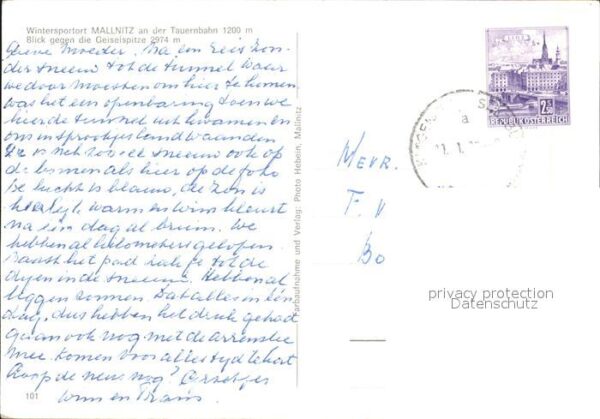 Wintersportort MALLNITZ an der Tauernbahn 1200 m
Blick gegen die Geiselspitze 2974 m
Lieve Moeder. Na een reis zon-
der sneeuw tot de tunnel waar
we door moesten om hier te komen
was het een openbaring toen we
hier de tunnel uit kwamen en
ons in sprookjesland waanden
Er is net zoveel sneeuw ook op
de bomen als hier op de foto
De lucht is blauw, de zon is
warm en wim kleurt
na een dag al bruin. We
hebben al kilometers gelopen.
Naast het pad zak je tot de
dyen in de sneeuw. Hebben al
liggen zonnen. Dat alles in een
dag, dus hebben het druk gehad
gaan ook nog met de arreslee
mee. Komen voor alles tyd te kort
wim en Trais
101
Farbaufnahme und Verlag: Photo Hebein, Mallnitz
Mevr.
F. V
Bo
LINZ
2.50
S
REPUBLIK ÖSTERREICH
a
privacy protection
Datenschutz